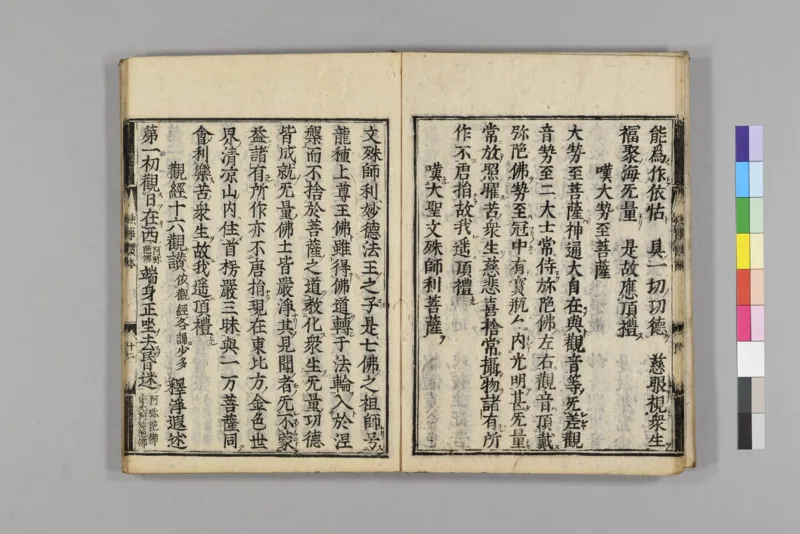 能爲作依怙　具一切功德　慈眼視衆生
福聚海无量　是故應頂禮
嘆大势至菩薩
大势至菩薩神通大自在與觀音等无差觀
音势至二大士常侍弥陁佛左右觀音頂戴
弥陁佛势至冠中有寳瓶内光明甚无量
常放照曜苦衆生慈悲喜捨常攝物諸有所
作不唐捐故我遥頂禮
嘆大聖文殊師利菩薩
文殊師利妙德法王之子是七佛之祖師号
龍種上尊王佛雖得佛道轉于法輪入於涅
槃而不捨於菩薩之道教化衆生无量功德
皆成就无量佛土皆嚴淨其見聞者无不蒙
益諸有所作亦不唐捐現在東北方金色世
界清凉山内住首楞嚴三昧與一万菩薩同
會利樂苦衆生故我遥頂禮
觀經十六觀讃依觀經各誦少多　釋淨遐述
第一初觀日在西阿弥陁佛端身正坐去昏迷阿弥陁佛
十二